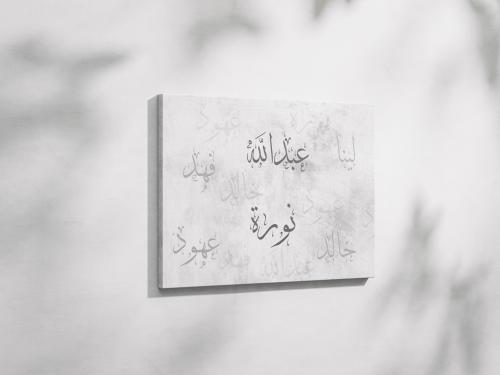 نورة عهود
لينا عبدالله فهد
خالد
عهود
نورة
خالد عهود
عبدالله فهد